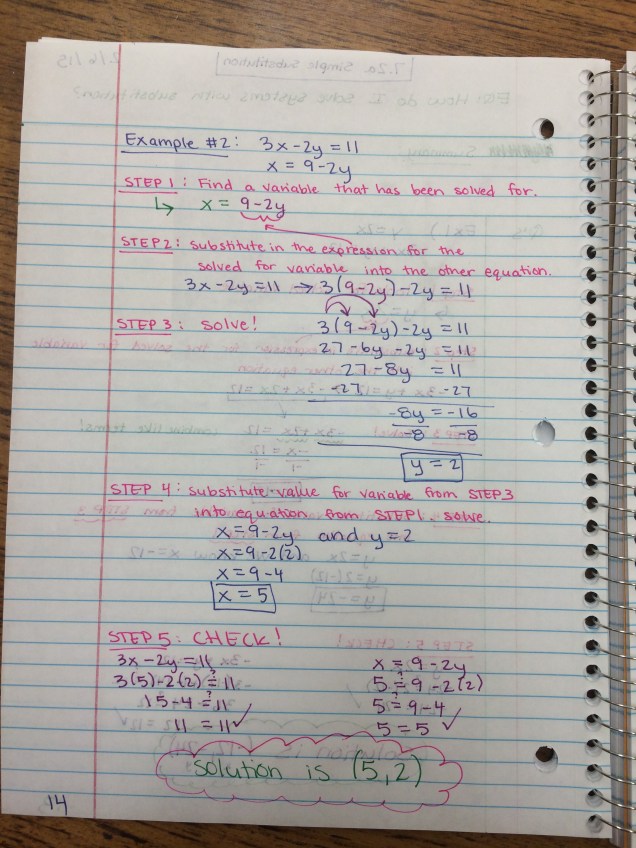 Example #2: 3x-2y=11
x = 9-2y
STEP 1: Find a variable that has been solved for.
↳ x = 9-2y
STEP 2: substitute in the expression for the
solved for variable into the other equation.
3x-2y=11 → 3(9-2y)-2y=11
STEP 3: solve!
3(9-2y)-2y=11
27-6y-2y=11
27-8y =11
-27 -27
-8y=-16
-8 -8
y=2
STEP 4: substitute value for variable from STEP 3
into equation from STEP 1. solve.
x=9-2y and y=2
x=9-2(2)
x=9-4
x=5
STEP 5: CHECK!
3x-2y=11 x=9-2y
3(5)-2(2)≟11 5≟9-2(2)
15-4≟11 5≟9-4
11=11✓ 5=5✓
solution is (5,2)
14